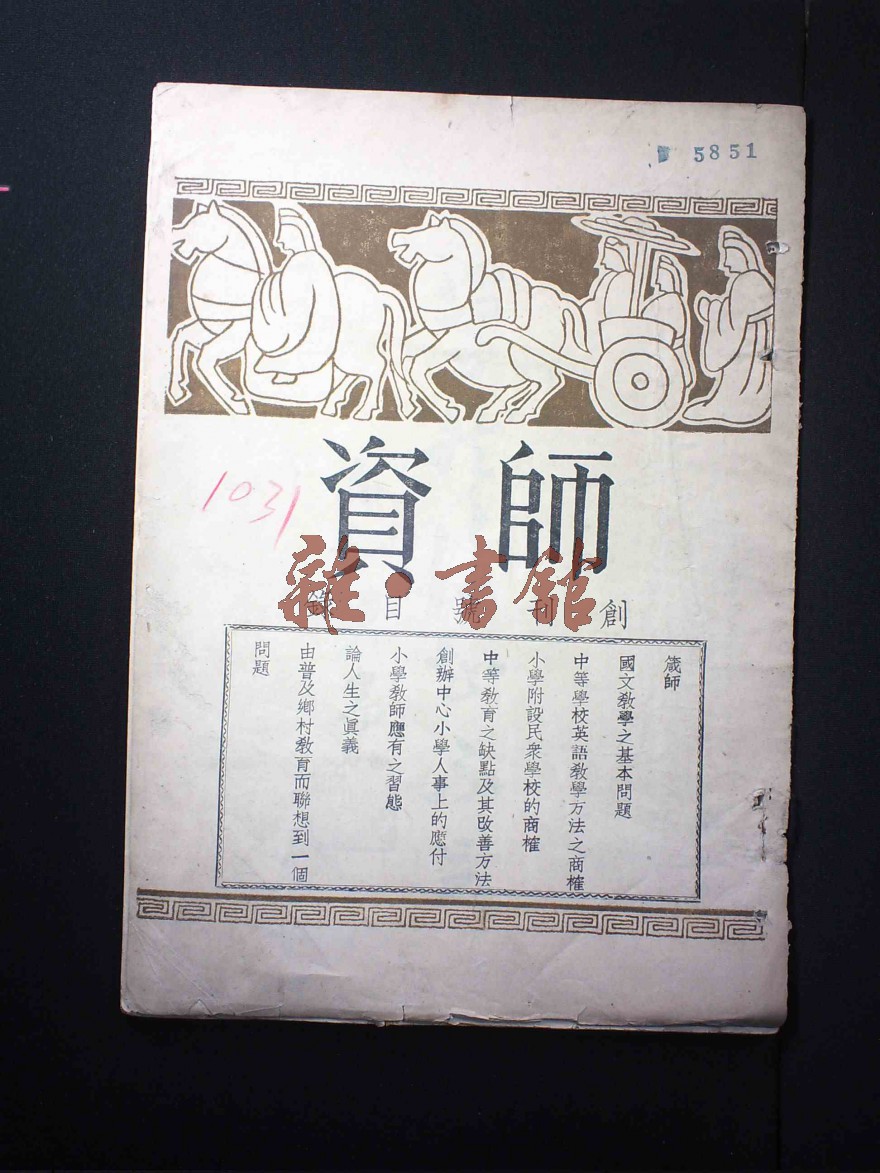 5851
師資
1031
雜·書館
創刊號目錄
箴師
國文教學之基本問題
中等學校英語教學方法之商榷
小學附設民衆學校的商榷
中等教育之缺點及其改善方法
創辦中心小學人事上的應付
小學教師應有之習態
論人生之眞義
由普及鄉村教育而聯想到一個
問題